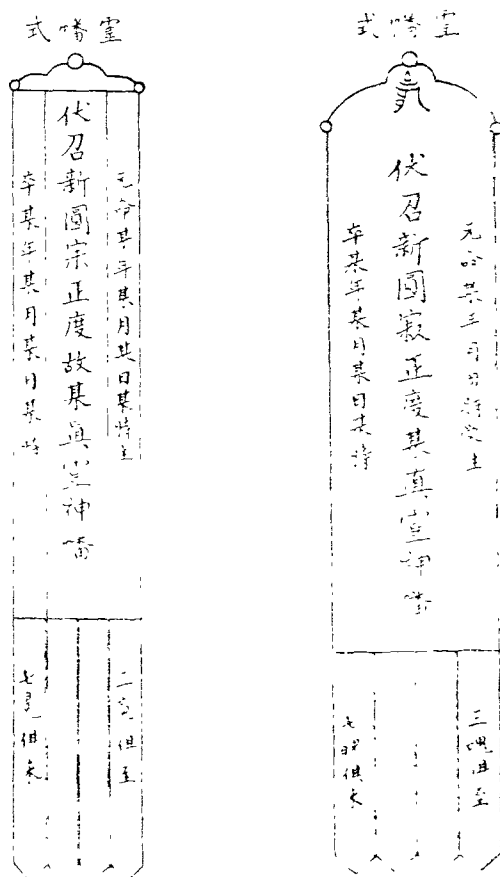 霊幡式
元命某年月日時受生
伏召新圓寂正度某真霊神幡
卒某年某月某日某時
三魂俱至
七魄俱來
霊幡式
元命某年某月某日某時生
伏召新圓宗正度故某眞霊神幡
卒某年某月某日某時
三魂俱至
七魄俱來